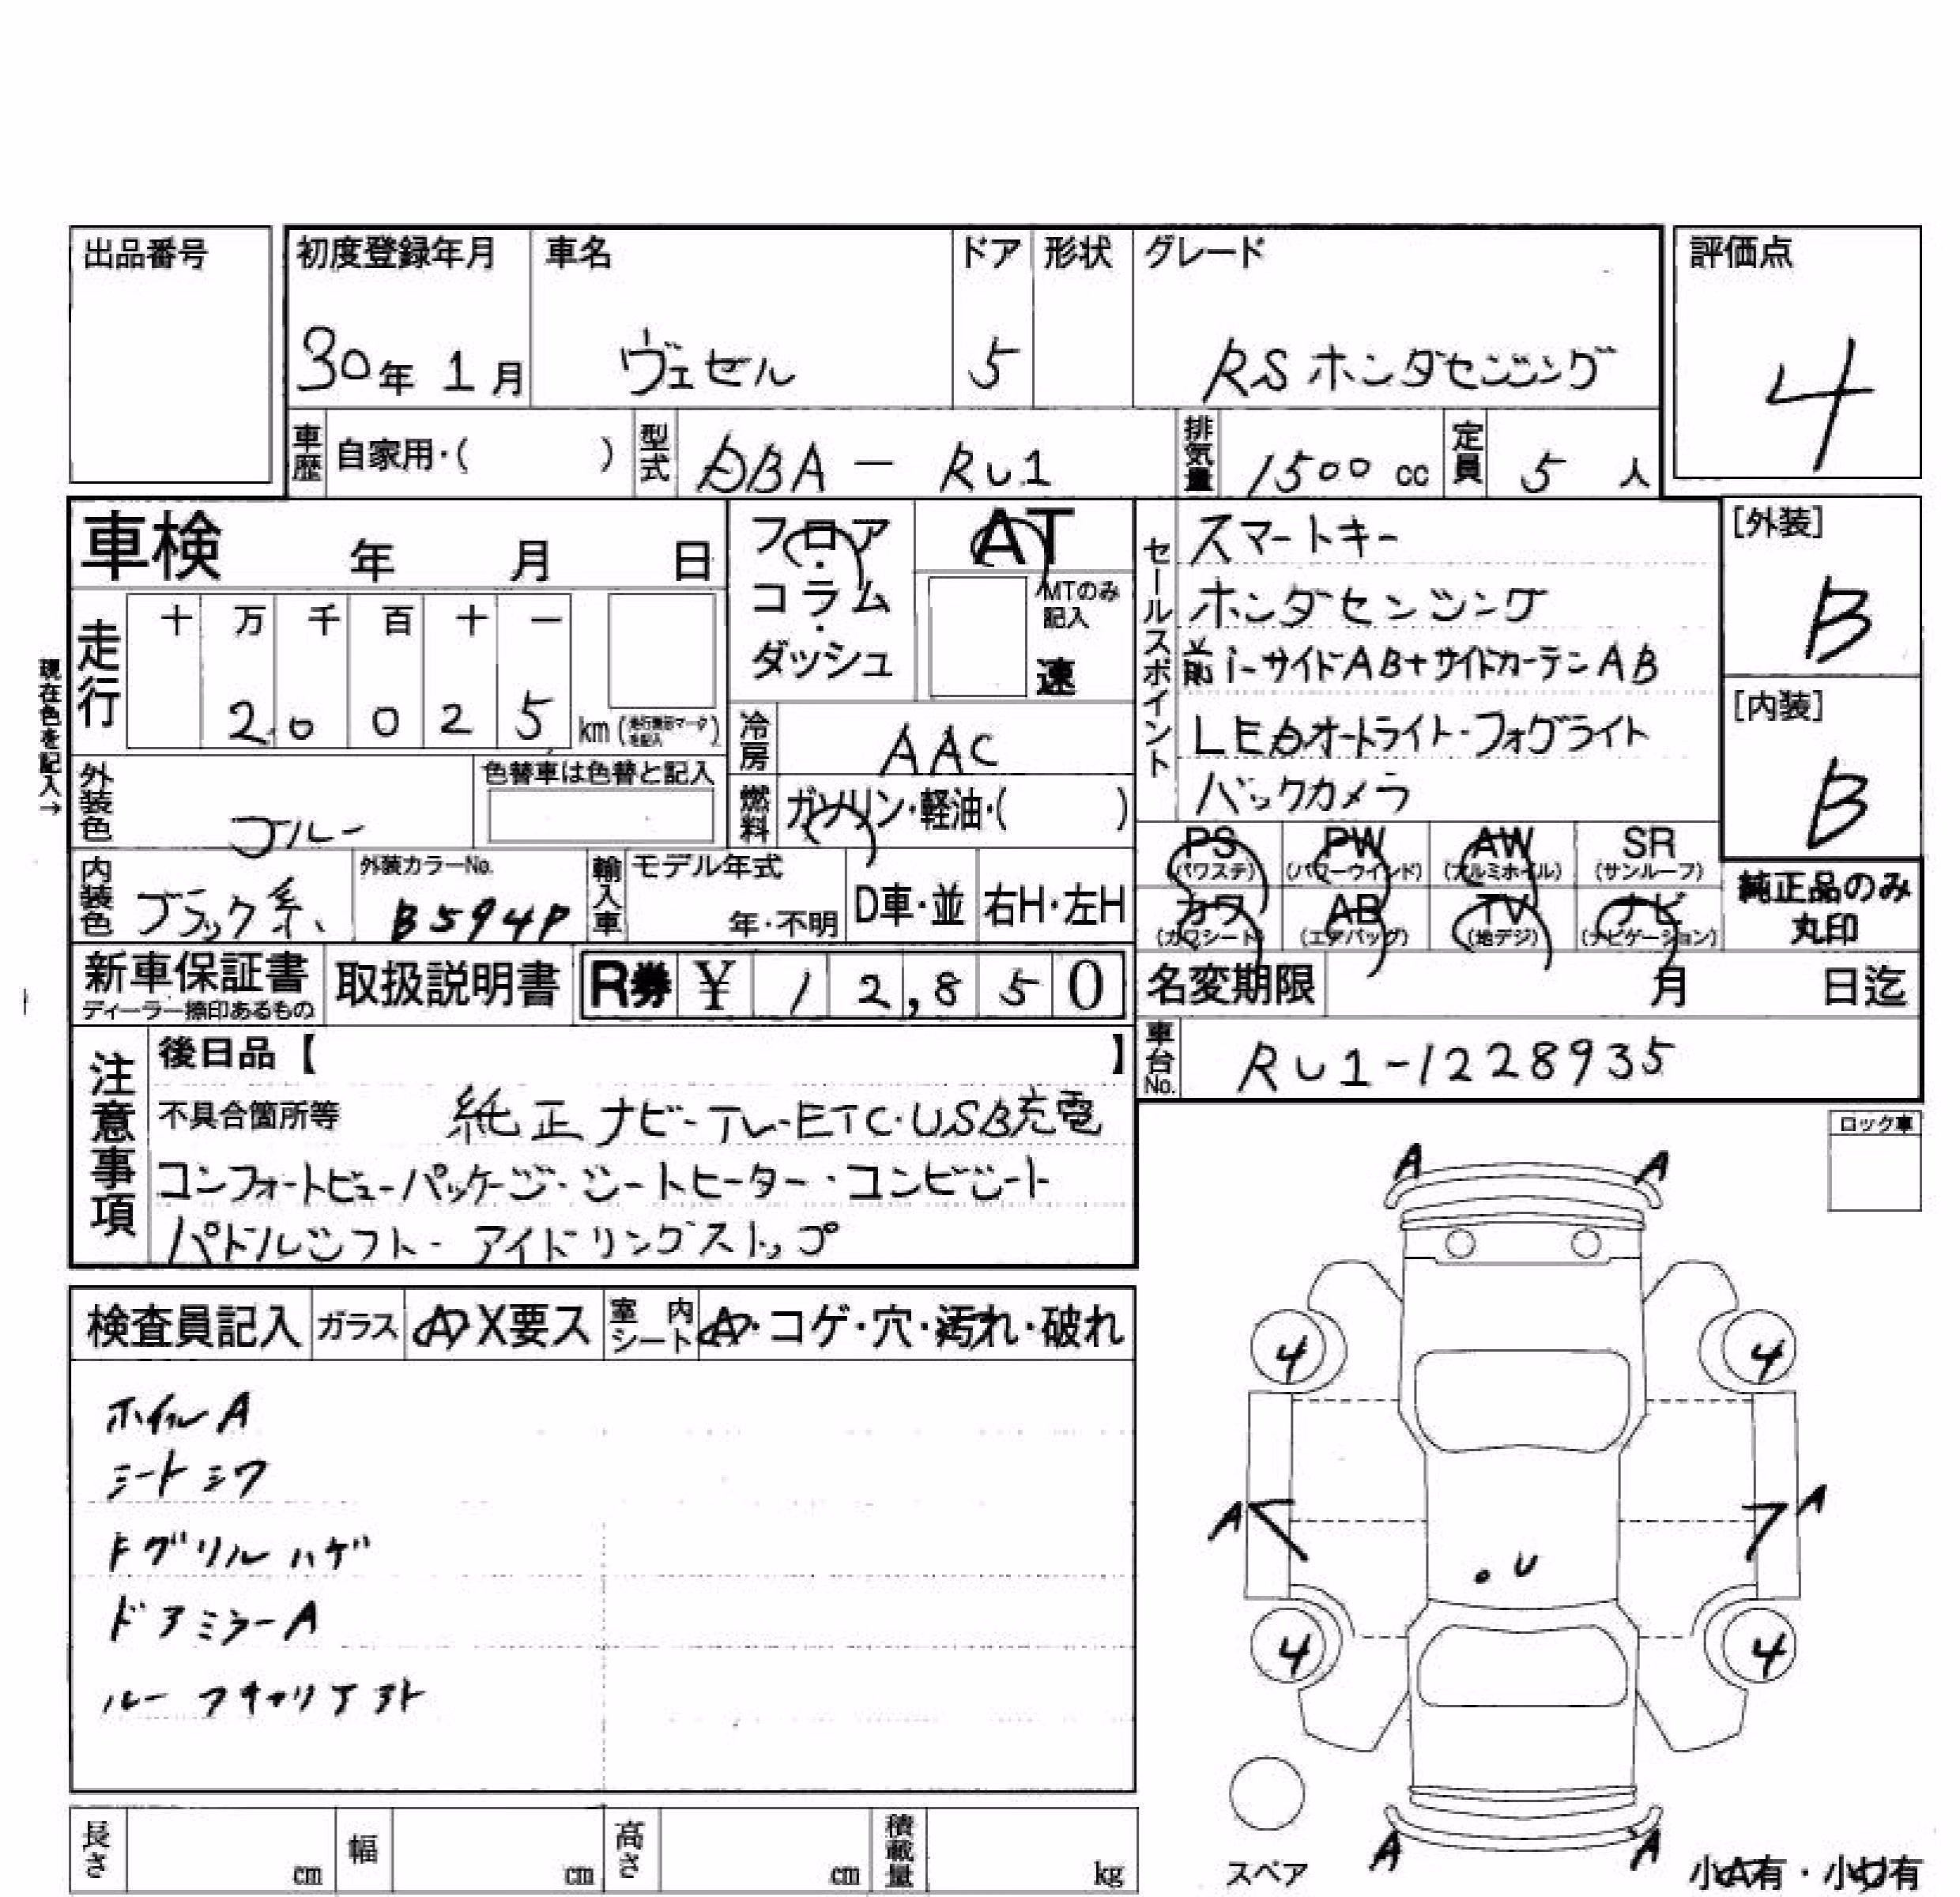 出品番号
初度登録年月 車名 ドア 形状 グレード 評価点
30年 1月 ヴェゼル 5 RSホンダセンシング 4
車歴 自家用・( ) 型式 DBA - RU1 排気量 1500 cc 定員 5 人
車検 年 月 日
フロア・コラム・ダッシュ
AT
MTのみ記入
速
現在色を記入→
走行 十 万 千 百 十 一
2 0 0 2 5 km (走行無印マークを記入)
冷房 AAC
外装色 ブルー 色替車は色替と記入
燃料 ガソリン・軽油・( )
セールスポイント
スマートキー
ホンダセンシング
前i-サイドAB+サイドカーテンAB
LEDオートライト・フォグライト
バックカメラ
[外装] B
[内装] B
内装色 ブラック系 外装カラーNo. B594P 輸入車 モデル年式 年・不明 D車・並 右H・左H
PS (パワステ) PW (パワーウインド) AW (アルミホイル) SR (サンルーフ)
カワ (カワシート) AB (エアバッグ) TV (地デジ) ナビ (ナビゲーション)
純正品のみ丸印
新車保証書 ディーラー捺印あるもの 取扱説明書 R券 ¥ 12,850
名変期限 月 日迄
車台No. RU1-1228935
注意事項
後日品【 】
不具合箇所等 純正ナビ-TV-ETC・USB充電
コンフォートビューパッケージ・シートヒーター・コンビシート
パドルシフト・アイドリングストップ
ロック車
検査員記入 ガラス A X要ス 室内シート A・コゲ・穴・汚れ・破れ
ホイルA
シートシワ
Fグリルハゲ
ドアミラーA
ルーフキャリアアト
A A
4 4
A A
・U
4 4
A A
スペア
小A有・小U有
長さ cm 幅 cm 高さ cm 積載量 kg